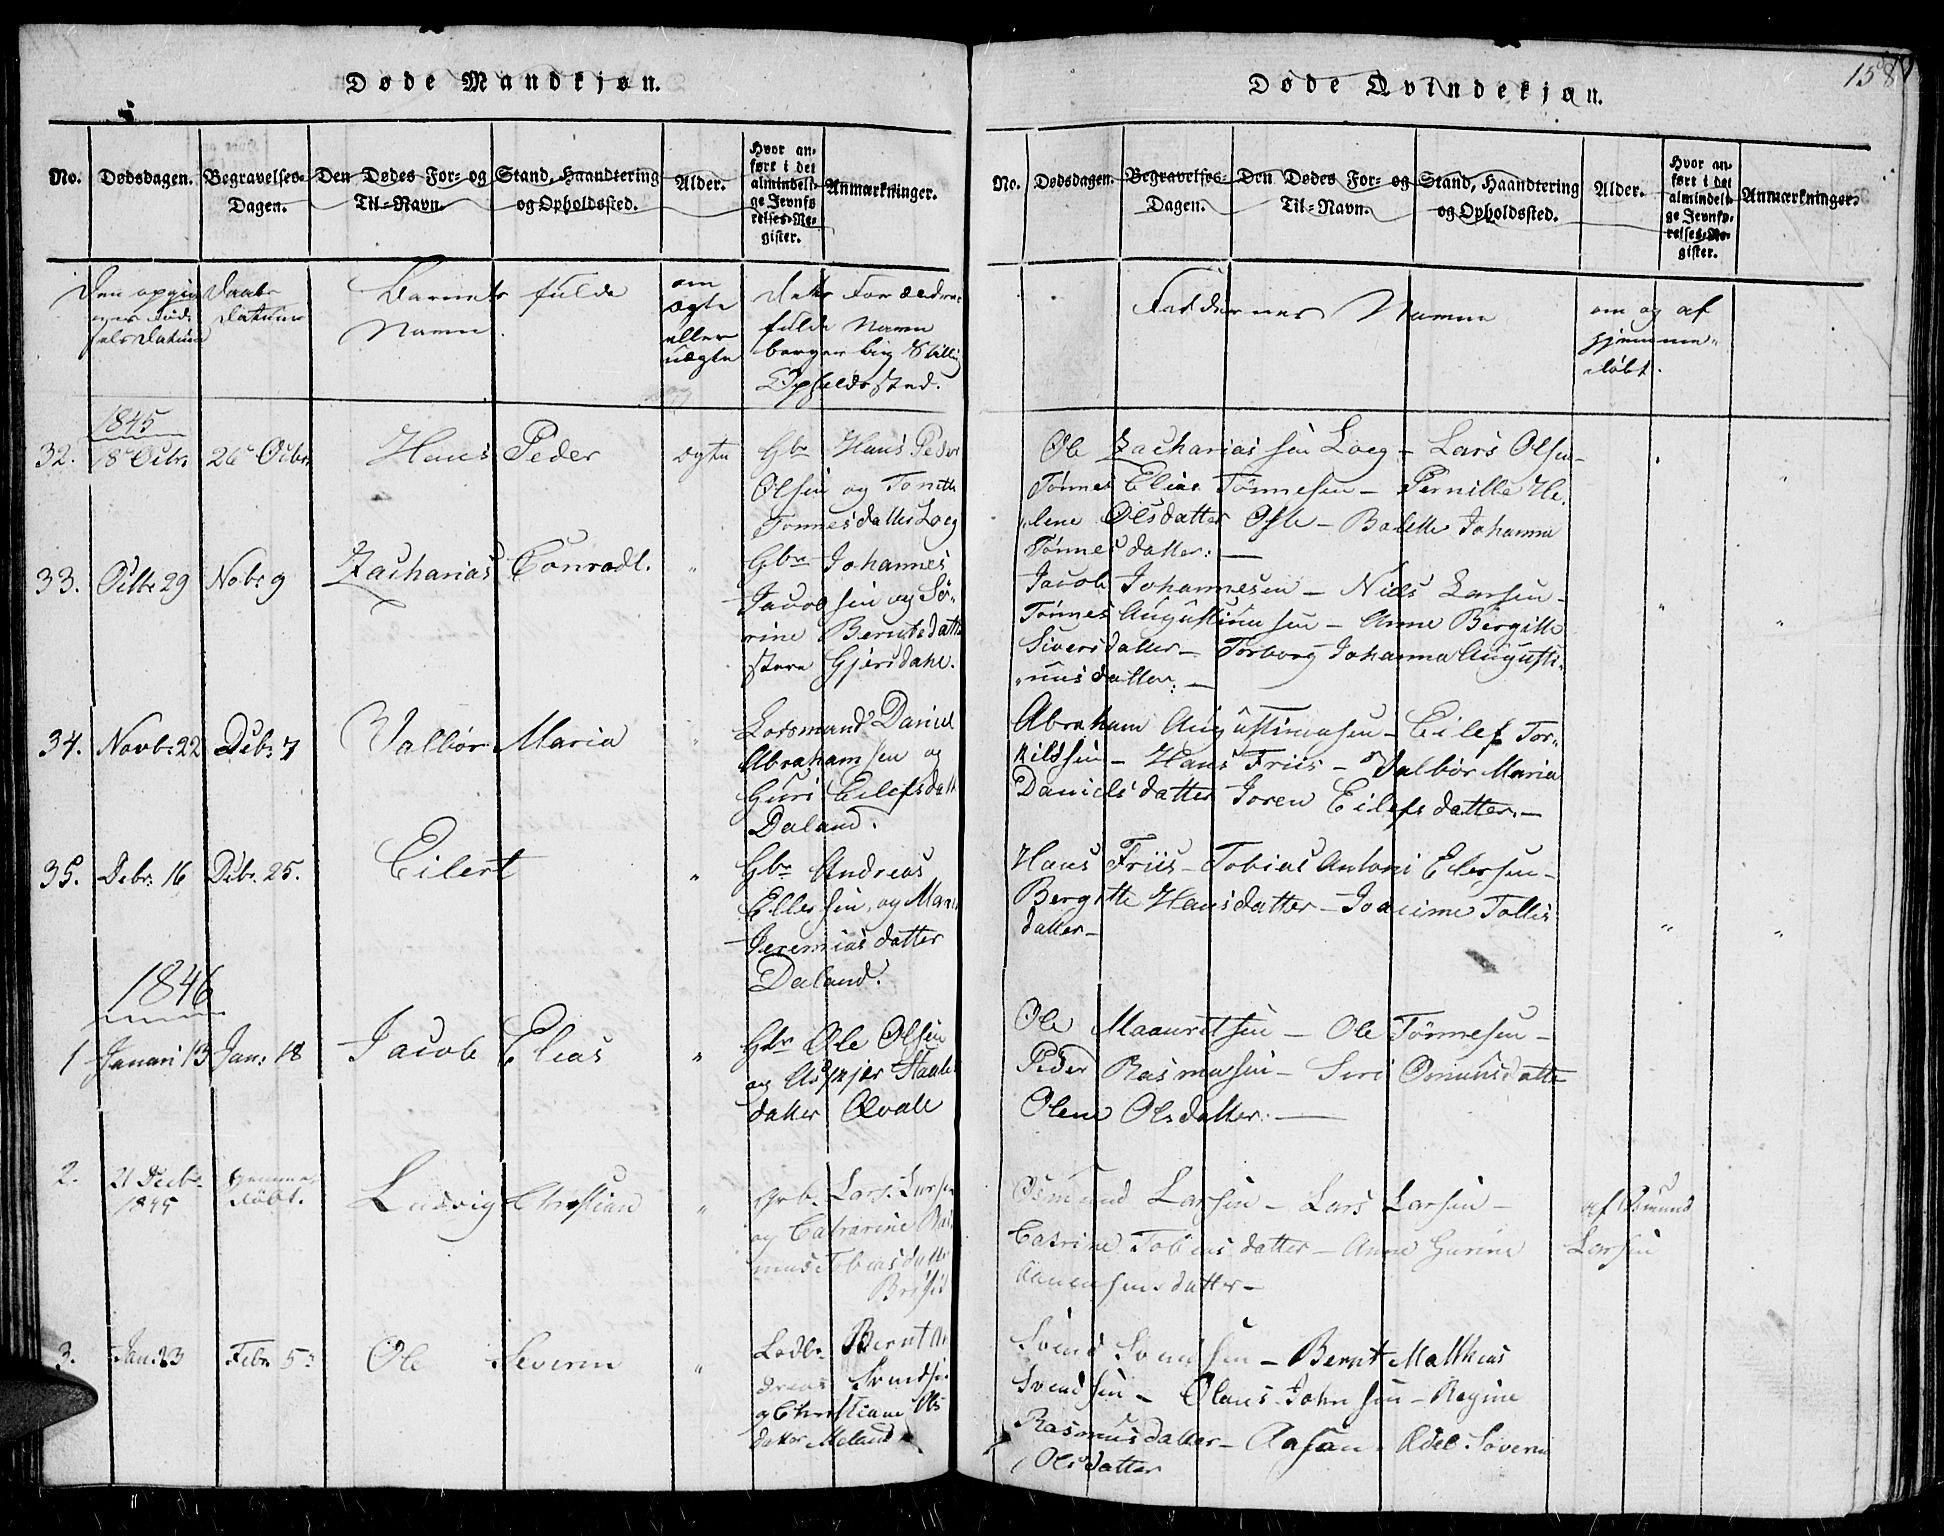 158
Døde Mandkjøn.
No.
Dødsdagen.
Begravelses-
Dagen.
Den Dødes For- og
Til-Navn.
Stand, Haandtering
og Opholdssted.
Alder.
Hvor an-
ført i det
almindeli-
ge Jevnfø-
relses-Re-
gister.
Anmærkninger.
Daabs
Datum
Barnets fulde
Navne
om
ægte
eller
uægte
fulde Navn
Opholdssted.
1845
32.
18 Octr.
26 Octbr.
Hans Peder
ægte
Gbr Hans Peder
Olsen og Tonette
Tonnesdatter Loeg
33.
Octbr 29
Nobr 9
Zacharias Conradt.
"
Gbr Johannes
Jacobsen og Sø-
rine Berntsdatter
store Gjersdahl.
34.
Novbr. 22
Debr. 7
Valbør Maria
"
Lotsmand Daniel
Abrahamsen og
Guri Eilefsdatt
Daland.
35.
Debr. 16
Debr. 25.
Eilert
"
Gbr Andreas
Ellefsen, og Mari
Jeremiasdatter
Daland.
1846
1
Januari 13
Jan: 18
Jacob Elias
"
Gbr Ole Olsen
og Asskjer Staale
datter Qvale
2.
21 Decbr.
1845
hjemme
døbt.
Ludvig Christian
"
Grb. Lars Larsen
og Catrarine Ras
mus Tobiasdatter
3.
Jan. 23
Febr. 5
Ole Severin
"
Lodtr Bernt An
dreas Svendsen
og Christiane Ols
datter Meland
Døde Qvindekjøn.
No.
Dødsdagen.
Begravelses-
Dagen.
Den Dødes For- og
Til-Navn.
Stand, Haandtering
og Opholdssted.
Alder.
Hvor an-
ført i det
almindeli-
ge Jevnfø-
relses-Re-
gister.
Anmærkninger.
Faddernes Navne
om og af
hjemme-
døbt.
Ole Zachariassen Loeg - Lars Olsen -
Tønnes Elias Tønnesen - Pernille He-
lene Olsdatter Ofte - Bolette Johanne
Tønnesdatter: -
Jacob Johannesen - Niels Larsen -
Tønnes Augustinusen - Anne Bergitte
Siversdatter - Torborg Johanna Augusti-
nusdatter: -
Abraham Augustinusen - Eilef Tor-
kildsen - Hans Friis - Valbør Maria
Danielsdatter Joren Eilefsdatter. -
Hans Friis - Tobias Antoni Eilersen -
Bergitte Hansdatter - Joacime Tollis
datter -
Ole Maauritsen - Ole Tønnesen -
Peder Rasmusen - Siri Omunsdatter
Olene Olsdatter: -
Osmund Larsen - Lars Larsen -
Catrine Tobiasdatter - Anne Gurine
datter -
af Osmund
Larsen
Svend Svendsen - Bernt Matthias
Svendsen - Olaus Johnsen - Regine
Rasmusdatter - Aasan Adel Severin
Olsdatter